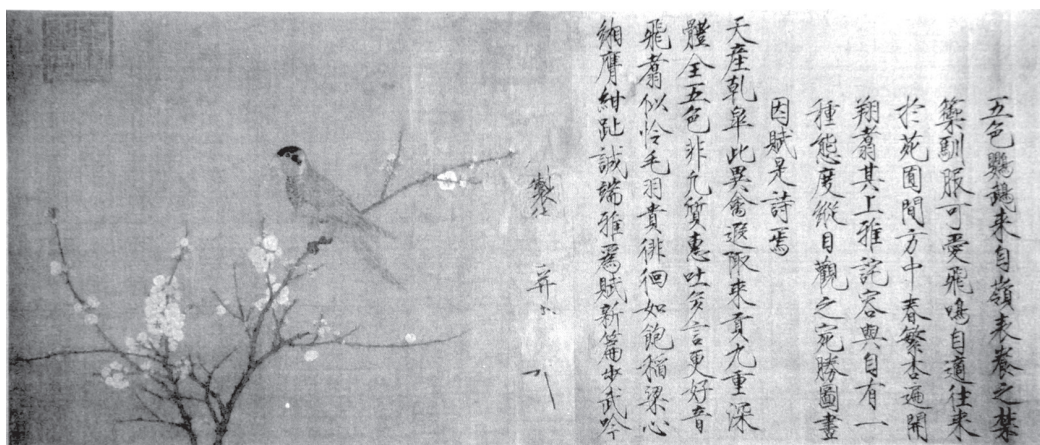 五色鸚鵡来自嶺表養之禁
籞馴服可愛飛鳴自適往来
於苑囿間方中春繁杏遍開
翔翥其上雅詫容與自有一
種態度縱目觀之宛勝圖畫
因賦是詩焉
天產乾皐此異禽遐陬来貢九重深
體全五色非凡質惠吐多言更好音
飛翥似怜毛羽貴徘徊如飽稻粱心
緗膺紺趾誠端雅爲賦新篇步武吟
製
并